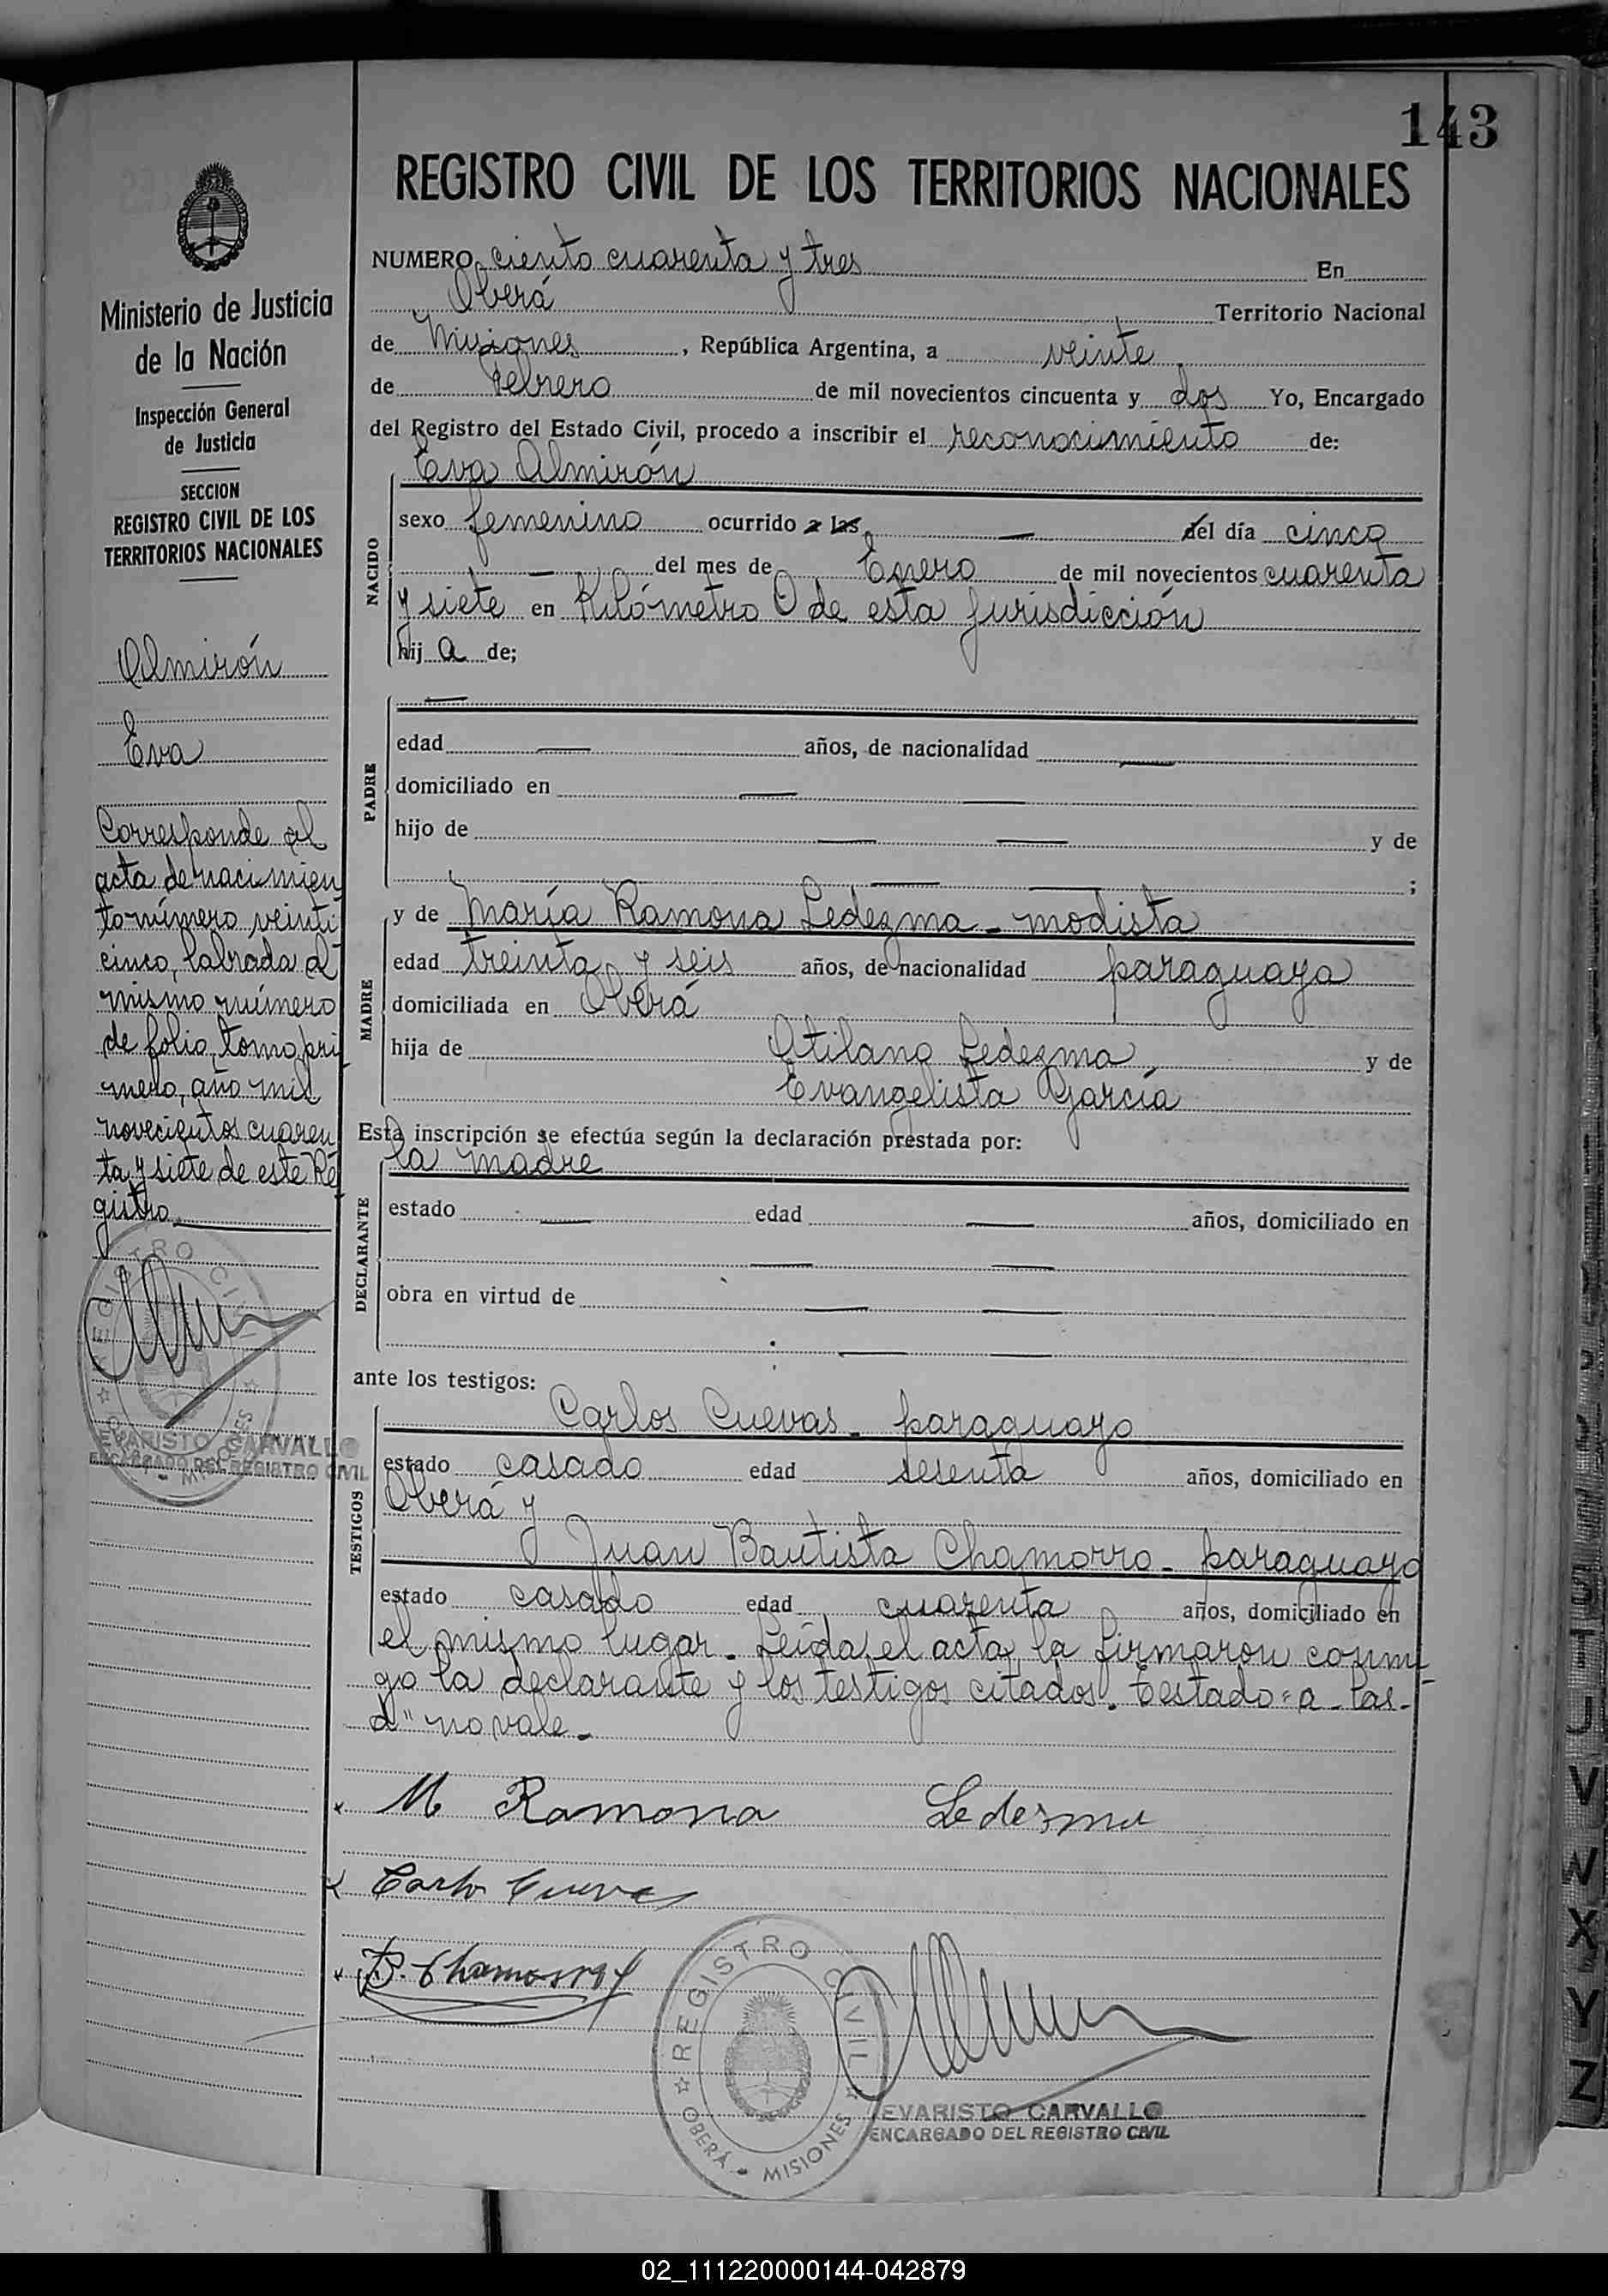 143
REGISTRO CIVIL DE LOS TERRITORIOS NACIONALES
Ministerio de Justicia
de la Nación
Inspección General
de Justicia
SECCION
REGISTRO CIVIL DE LOS
TERRITORIOS NACIONALES
Almirón
Eva
Corresponde al
acta de nacimien
to número veinti
cinco, labrada al
mismo número
de folio, tomo pri
mero, año mil
novecientos cuaren
ta y siete de este Re
gistro
REGISTRO CIVIL
OBERÁ MISIONES
EVARISTO CARVALLO
ENCARGADO DEL REGISTRO CIVIL
NUMERO ciento cuarenta y tres En
Oberá Territorio Nacional
de Misiones, República Argentina, a veinte
de Febrero de mil novecientos cincuenta y dos Yo, Encargado
del Registro del Estado Civil, procedo a inscribir el reconocimiento de:
Eva Almirón
NACIDO
sexo femenino ocurrido a las — del día cinco
— del mes de Enero de mil novecientos cuarenta
y siete en Kilómetro 0 de esta jurisdicción
hij a de;
PADRE
—
edad — años, de nacionalidad —
domiciliado en — —
hijo de — — y de
— — ;
MADRE
y de María Ramona Ledezma - modista
edad treinta y seis años, de nacionalidad paraguaya
domiciliada en Oberá
hija de Atilano Ledezma y de
Evangelista García
Esta inscripción se efectúa según la declaración prestada por:
DECLARANTE
la madre
estado — edad — años, domiciliado en
— —
obra en virtud de — —
— —
ante los testigos:
TESTIGOS
Carlos Cuevas - paraguayo
estado casado edad sesenta años, domiciliado en
Oberá y
Juan Bautista Chamorro - paraguayo
estado casado edad cuarenta años, domiciliado en
el mismo lugar. Leída el acta, la firmaron conmi
go la declarante y los testigos citados. Testado "a - las -
d" no vale.-
x M Ramona Ledezma
x Carlos Cuevas
x B. Chamorro
REGISTRO CIVIL
OBERÁ MISIONES
EVARISTO CARVALLO
ENCARGADO DEL REGISTRO CIVIL
S
T
U
V
W
X
Y
Z
02_111220000144-042879